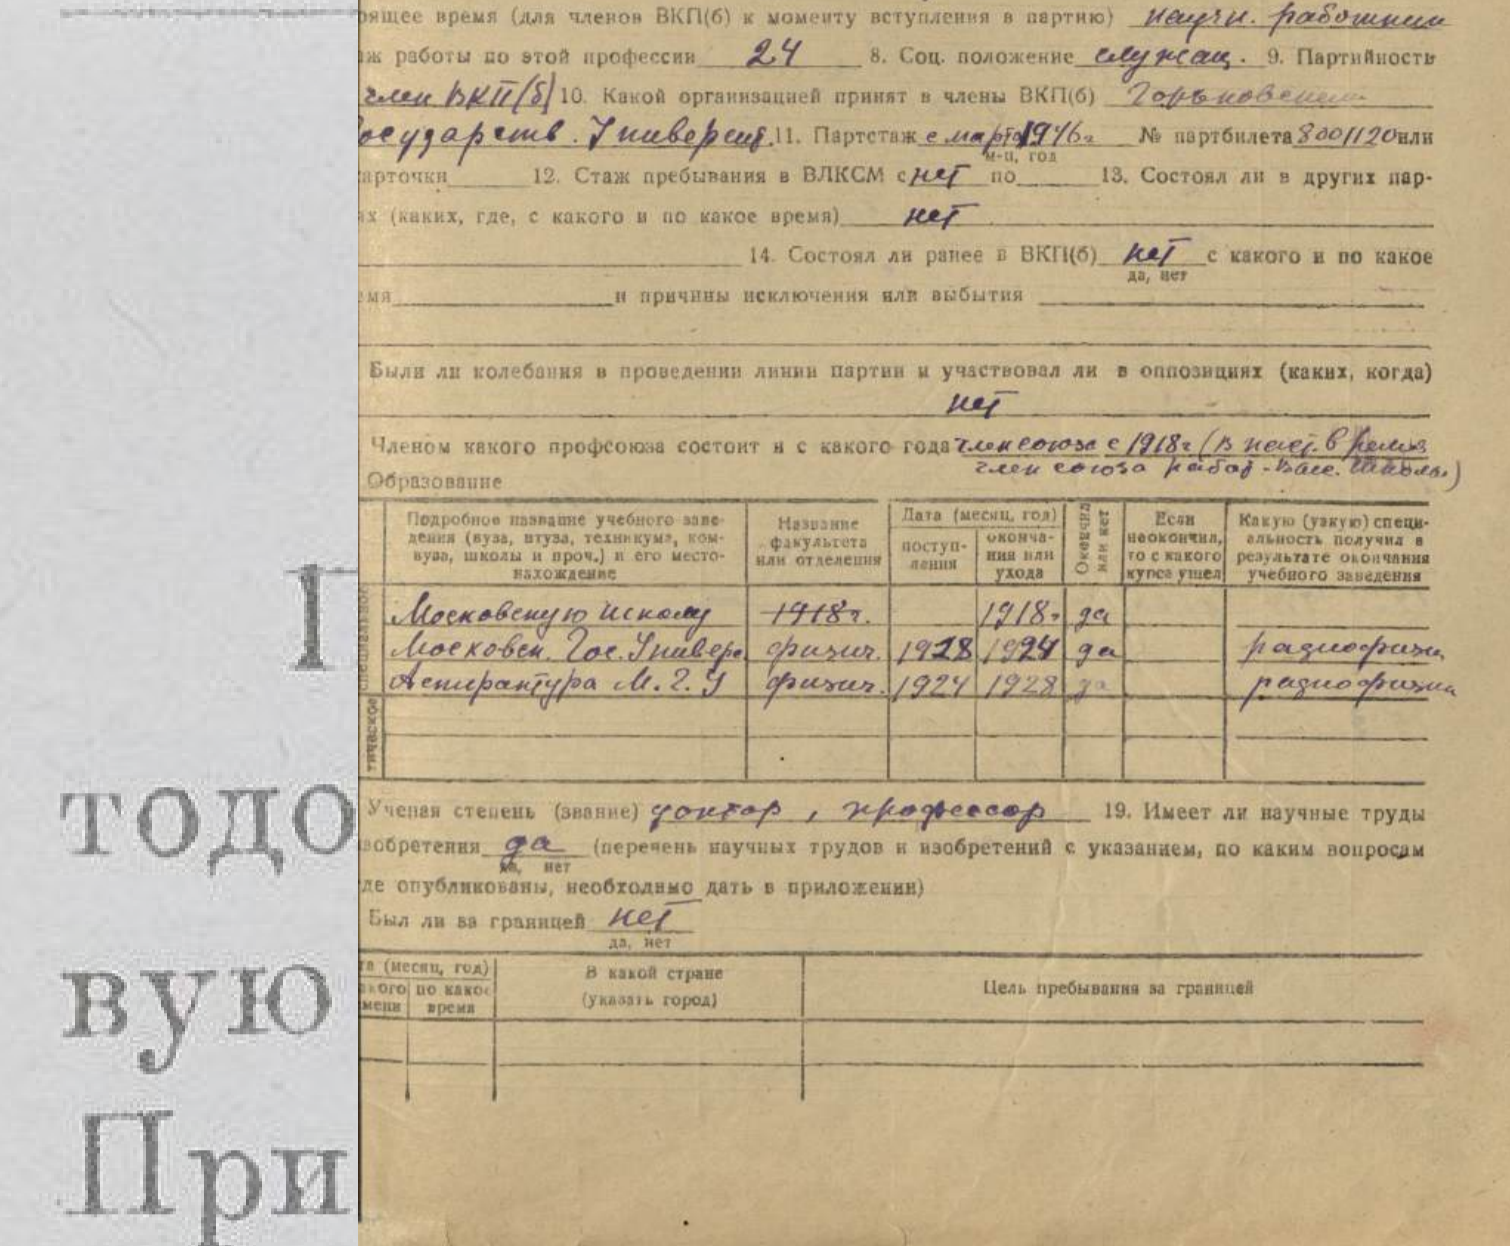 оящее время (для членов ВКП(б) к моменту вступления в партию) научн. работник
ж работы по этой профессии 24 8. Соц. положение служащ. 9. Партийность
член ВКП(б) 10. Какой организацией принят в члены ВКП(б) Горьковским
осударств. Университ. 11. Партстаж с марта 1946г № партбилета 8001120 или
м-ц, год
арточки 12. Стаж пребывания в ВЛКСМ с нет по 13. Состоял ли в других пар-
ах (каких, где, с какого и по какое время) нет
14. Состоял ли ранее в ВКП(б) нет с какого и по какое
да, нет
мя и причины исключения или выбытия
Были ли колебания в проведении линии партии и участвовал ли в оппозициях (каких, когда)
нет
Членом какого профсоюза состоит и с какого года член союза с 1918г (в наст. время
член союза работ. Высш. Школы)
Образование
Подробное название учебного заве-
дения (вуза, втуза, техникума, ком-
вуза, школы и проч.) и его место-
нахождение
Название
факультета
или отделения
Дата (месяц, год)
поступ-
ления
оконча-
ния или
ухода
Окончил
или нет
Если
неокончил,
то с какого
курса ушел
Какую (узкую) специ-
альность получил в
результате окончания
учебного заведения
Московскую школу 1918г. 1918г да
Московск. Гос. Универс. физич. 1928 1924 да радиофизик
Аспирантура М.Г.У физич. 1924 1928 да радиофизик
тическое
Ученая степень (звание) доктор, профессор 19. Имеет ли научные труды
зобретения да (перечень научных трудов и изобретений с указанием, по каким вопросам
да, нет
де опубликованы, необходимо дать в приложении)
Был ли за границей нет
да, нет
та (месяц, год)
акого
мени
по какое
время
В какой стране
(указать город)
Цель пребывания за границей
тодо
вую
При